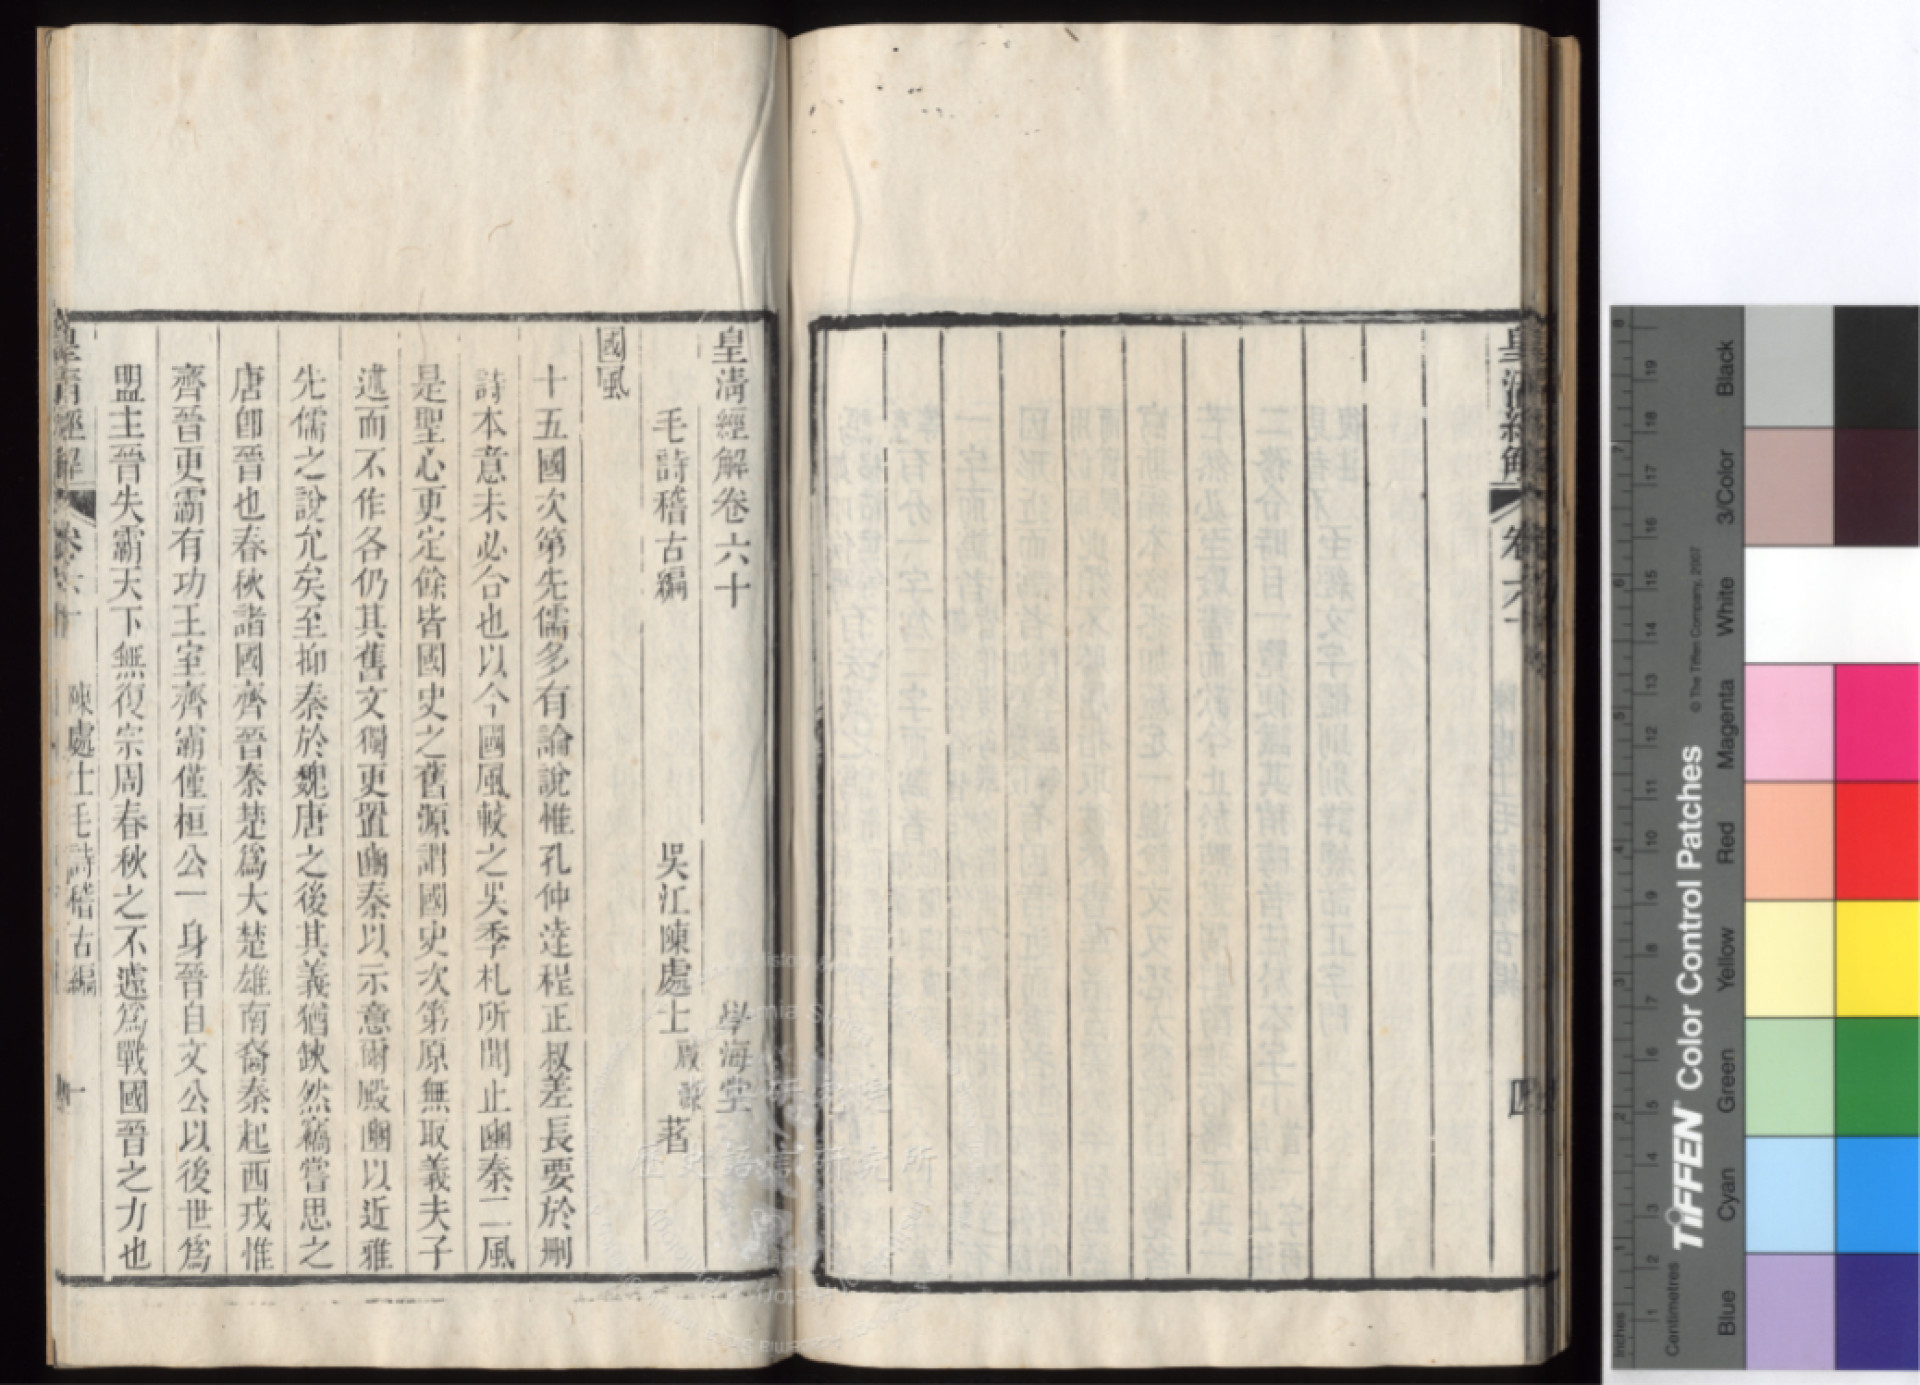 皇清經解
卷六十
四
皇清經解卷六十
學海堂
毛詩稽古編
吳江陳處士啟源著
國風
十五國次第先儒多有論說惟孔仲達程正叔差長要於刪
詩本意未必合也以今國風較之吳季札所聞止豳秦二風
是聖心更定餘皆國史之舊源謂國史次第原無取義夫子
述而不作各仍其舊文獨更置豳秦以示意爾殿豳以近雅
先儒之說允矣至抑秦於魏唐之後其義猶缺然竊嘗思之
唐卽晉也春秋諸國齊晉秦楚爲大楚雄南裔秦起西戎惟
齊晉更霸有功王室齊霸僅桓公一身晉自文公以後世爲
盟主晉失霸天下無復宗周春秋之不遽爲戰國晉之力也
皇清經解
卷六十
陳處士毛詩稽古編
一
TIFFEN Color Control Patches
© The Tiffen Company, 2007
Inches
Centimetres
Blue
Cyan
Green
Yellow
Red
Magenta
White
3/Color
Black